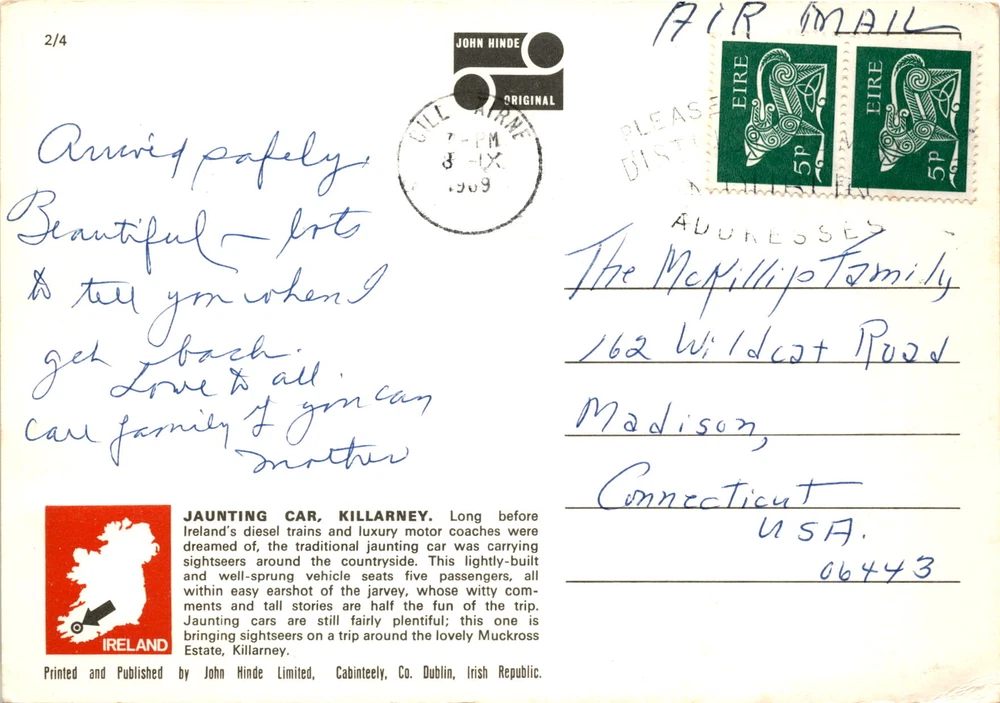 2/4
JOHN HINDE
ORIGINAL
AIR MAIL
EIRE
5P
EIRE
5P
CILL AIRNE
7-PM
8 IX
1969
PLEASE
ADDRESSES
Arrived safely.
Beautiful – lots
to tell you when I
get back.
Love to all.
Call family if you can
Mother
The McKillip Family
162 Wildcat Road
Madison,
Connecticut
USA.
06443
JAUNTING CAR, KILLARNEY. Long before
Ireland's diesel trains and luxury motor coaches were
dreamed of, the traditional jaunting car was carrying
sightseers around the countryside. This lightly-built
and well-sprung vehicle seats five passengers, all
within easy earshot of the jarvey, whose witty com-
ments and tall stories are half the fun of the trip.
Jaunting cars are still fairly plentiful; this one is
bringing sightseers on a trip around the lovely Muckross
Estate, Killarney.
IRELAND
Printed and Published by John Hinde Limited, Cabinteely, Co. Dublin, Irish Republic.